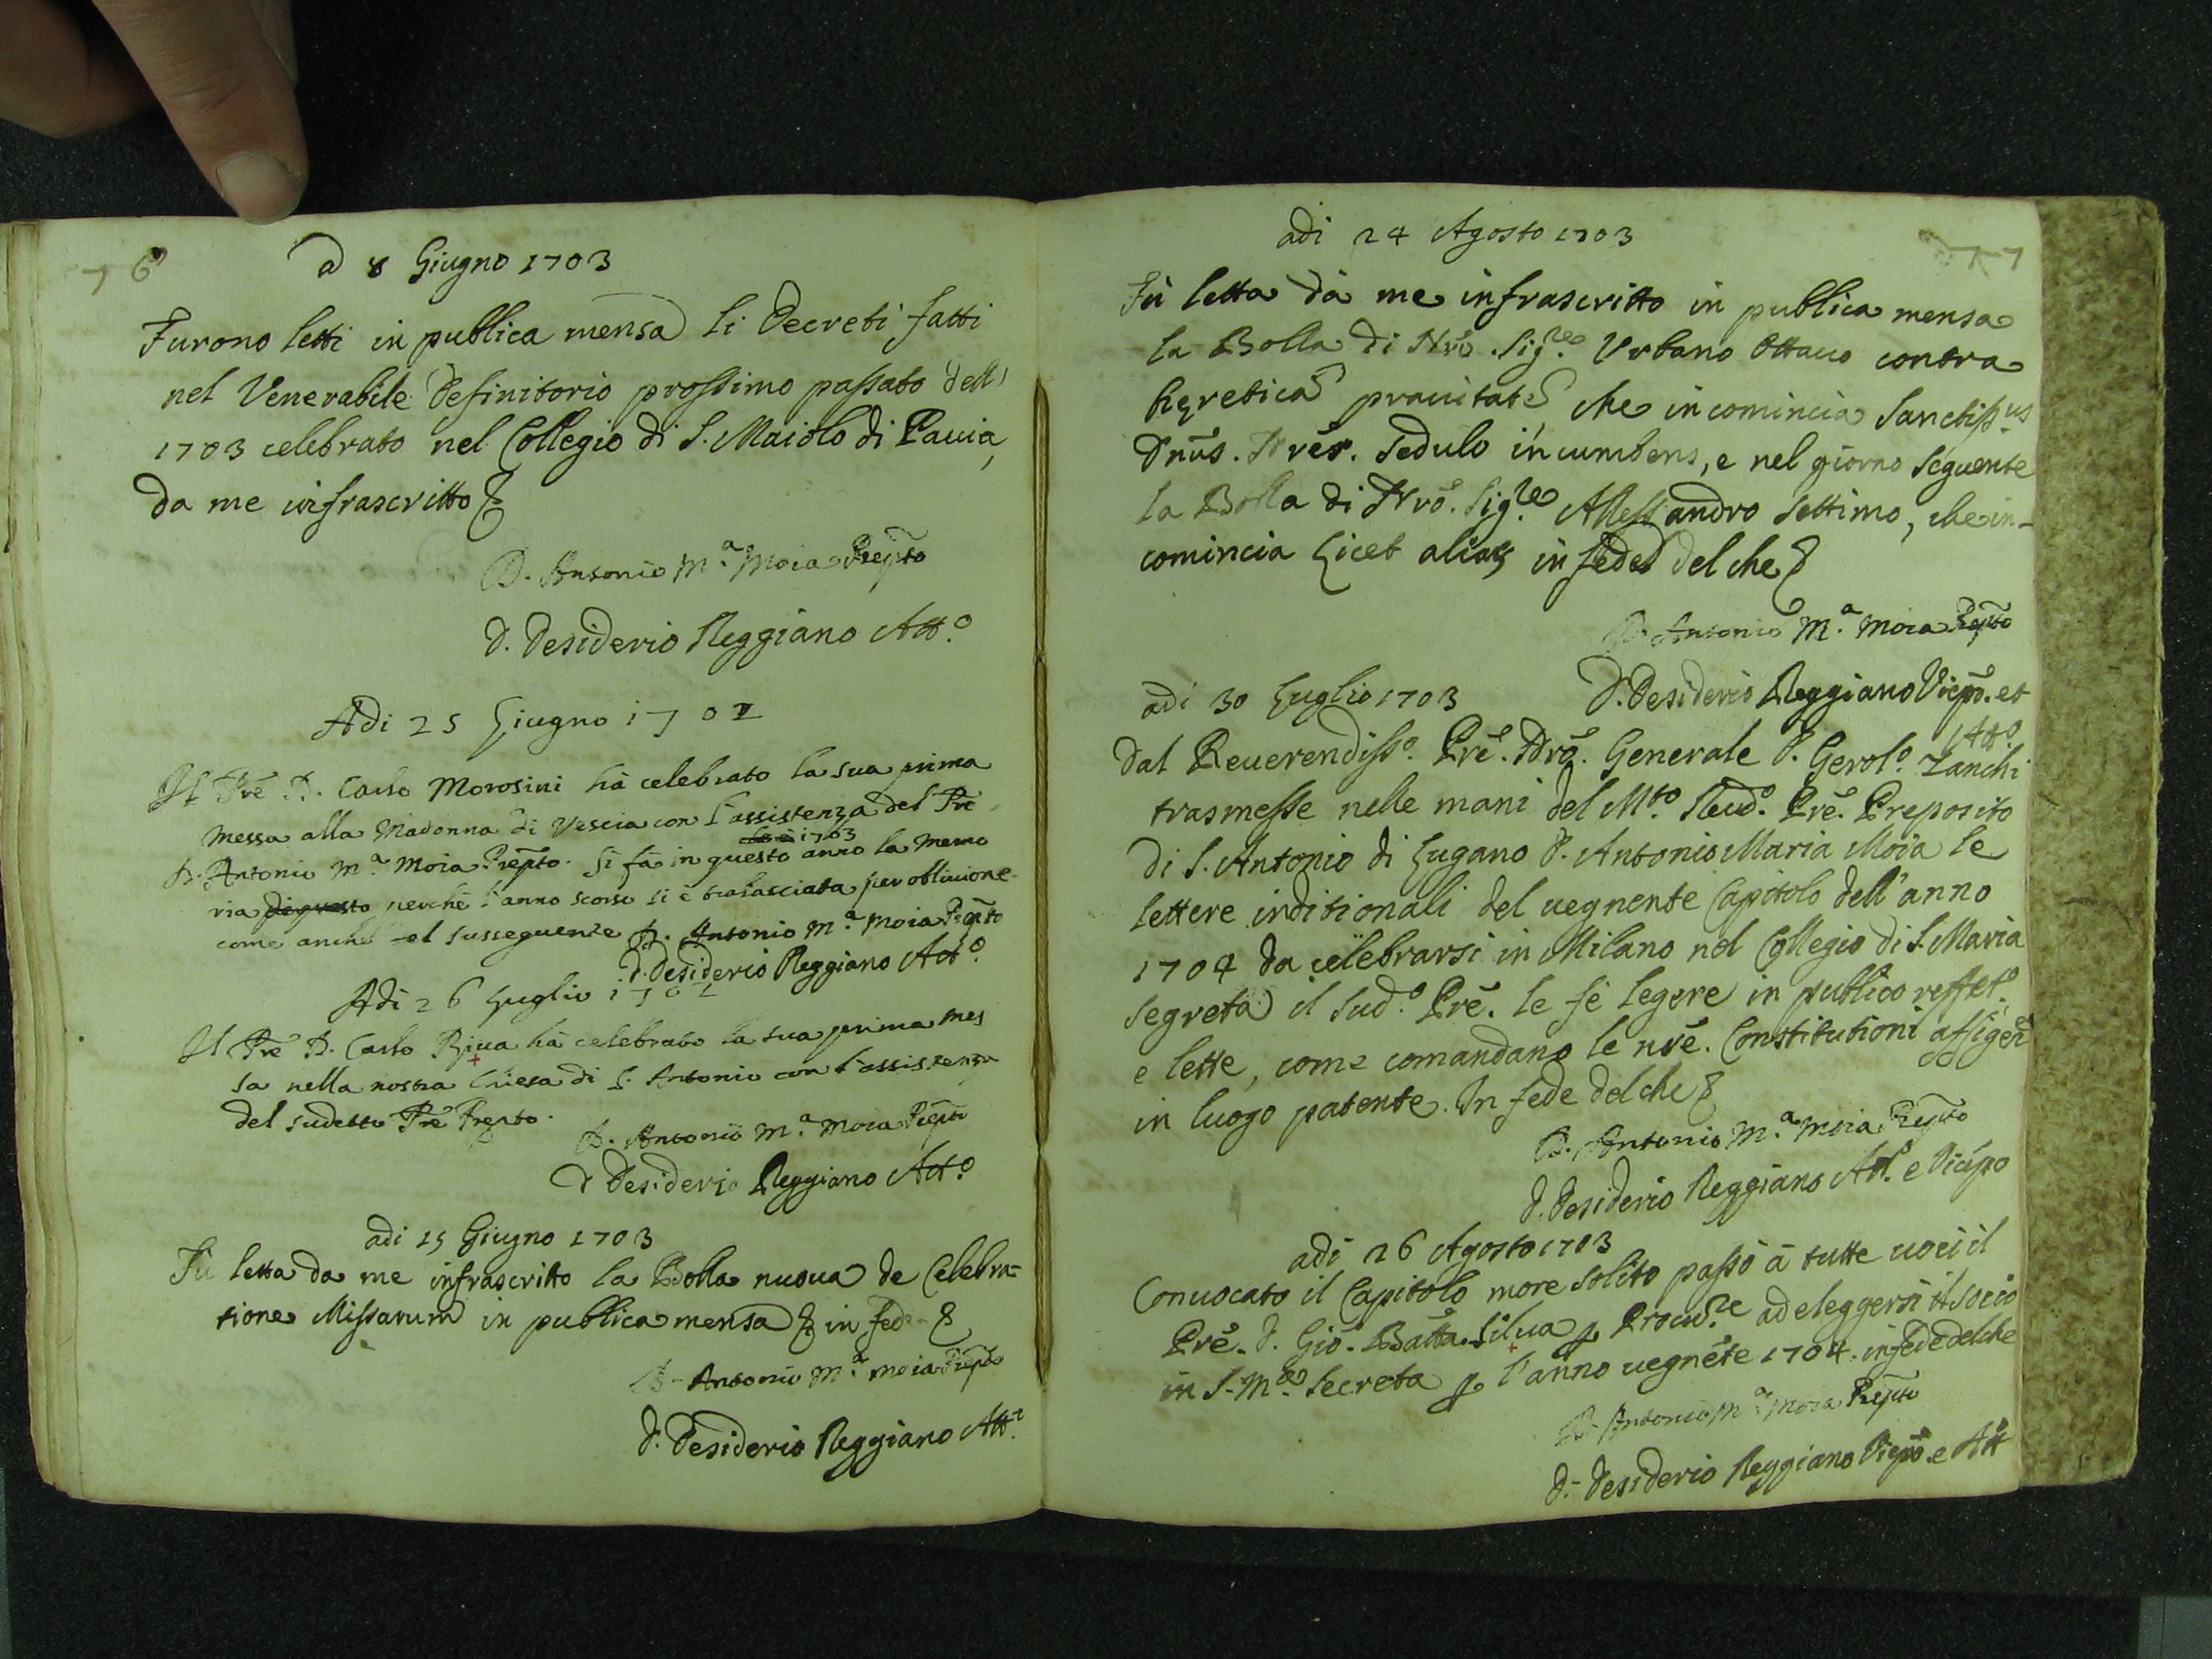 76
a 8 Giugno 1703
Furono letti in publica mensa li Decreti fatti
nel Venerabile Definitorio prossimo passato dell'
1703 celebrato nel Collegio di S. Maiolo di Pauia,
da me infrascritto
D. Antonio M.a Moia Prepto
D. Desiderio Reggiano Att.o
Adi 25 Giugno 1702
Il Pre D. Carlo Morosini hà celebrato la sua prima
messa alla Madonna di Vescia con l'assistenza del Pre
cioè 1703
D. Antonio M.a Moia Prepto. Si fà in questo anno la memo
ria di questo perche l'anno scorso si è tralasciata per obliuione
come anche el susseguente D. Antonio M.a Moia Prepto
D. Desiderio Reggiano Att.o
Adi 26 Luglio 1702
Il Pre D. Carlo Riua hà celebrato la sua prima mes
sa nella nostra Chiesa di S. Antonio con l'assistenza
del sudetto Pre Prepto.
D. Antonio M.a Moia Prepto
D Desiderio Reggiano Att.o
adi 15 Giugno 1703
Fù letta da me infrascritto la Bolla nuoua de Celebra-
tione Missarum in publica mensa in fede
D. Antonio M.a Moia Prepto
D. Desiderio Reggiano Att.o
77
adi 24 Agosto 1703
Fù letta da me infrascritto in publica mensa
la Bolla di Nro. Sig.re Urbano Ottauo contra
heretica prauitate che incomincia Sanctiss.us
Dnus. Nrer. sedulo incumbens, e nel giorno seguente
la Bolla di Nro. Sig.re Allessandro settimo, che in-
comincia Licet alias in fede del che
D. Antonio M.a Moia Prepto
adi 30 Luglio 1703 D. Desiderio Reggiano Vicepo. et
Att.o
Dal Reuerendiss.o Pre. Nro. Generale D. Gerol.o Zanchi
trasmesse nelle mani del M.to Reud.o Pre. Preposito
di S. Antonio di Lugano D. Antonio Maria Moia le
lettere inditionali del uegnente Capitolo dell'anno
1704 da celebrarsi in Milano nel Collegio di S. Maria
segreta il sud.o Pre. le fè legere in publico reffet.o
e lette, come comandano le nre. Constitutioni affiger
in luogo patente. In fede del che
D. Antonio M.a Moia Prepto
D. Desiderio Reggiano Att. e Vicepo
adi 26 Agosto 1703
Conuocato il Capitolo more solito passò à tutte uoci il
Pre. D. Gio. Batta. Silua p Procu.re ad eleggersi il socio
in S. M.a Secreta p l'anno uegnete 1704. in fede del che
D. Antonio M.a Moia Prepto
D. Desiderio Reggiano Vicepo. e Att